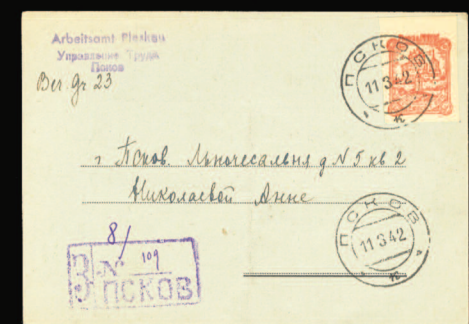 Arbeitsamt Pleskau
Управление Труда
Псков
Ber. Gr. 23
ПСКОВ
11 3 42
г Псков. Льночесальня д N 5 кв 2
Николаевой Анне
8/
ПСКОВ
11 3 42
З № 109
ПСКОВ